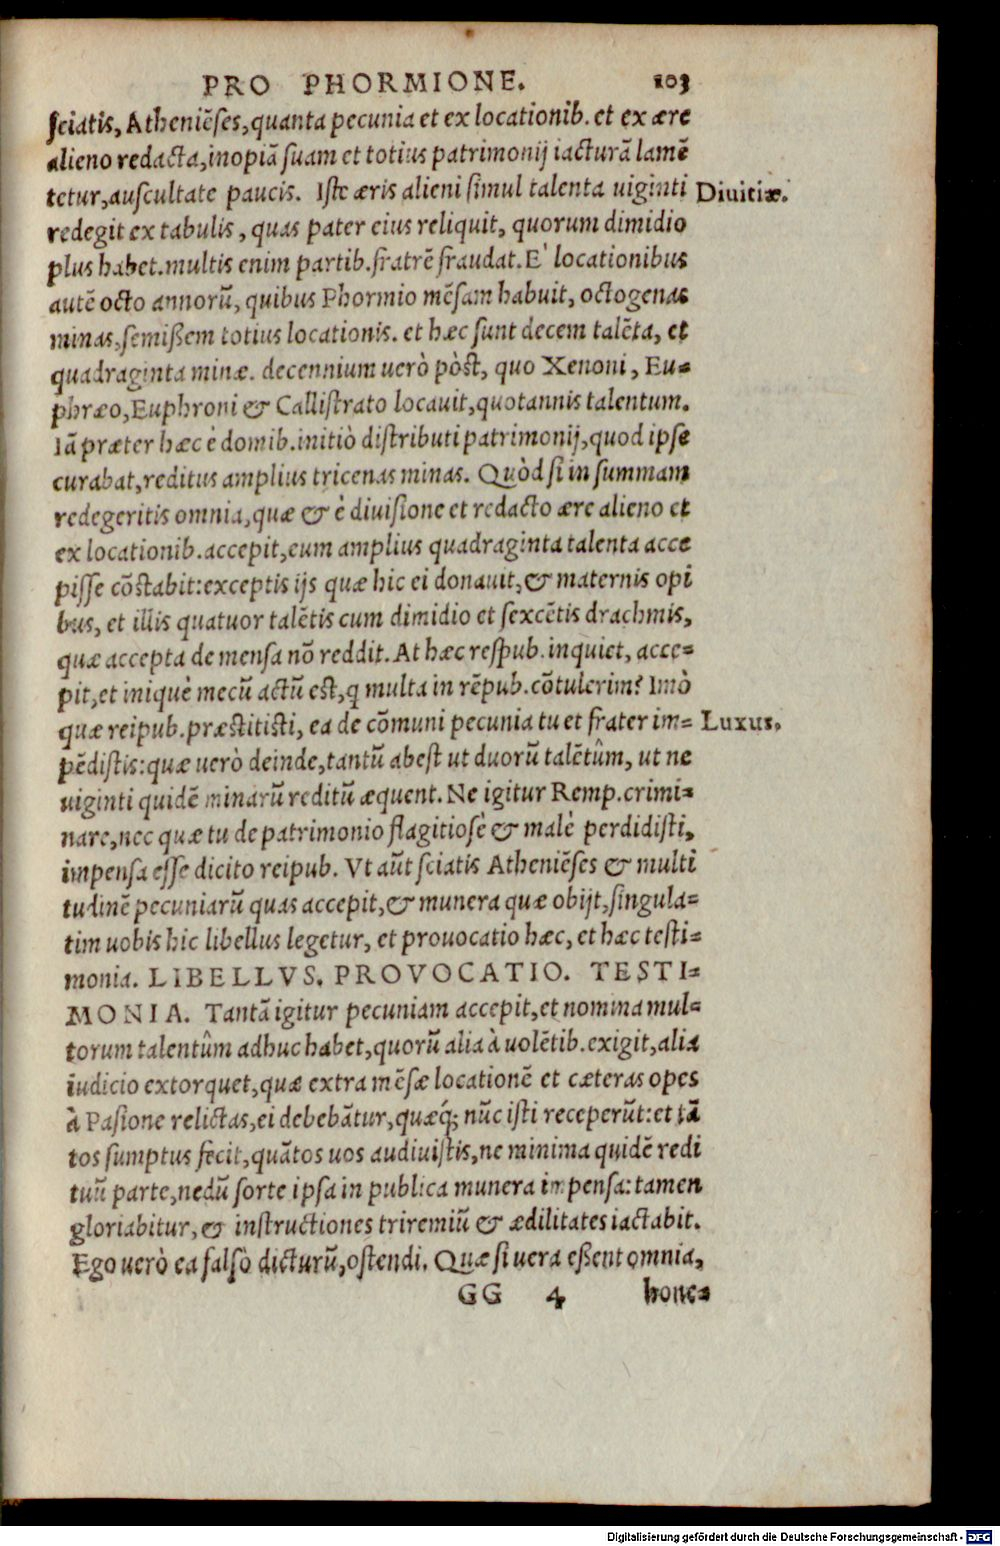 PRO PHORMIONE. 103
sciatis, Atheniẽses, quanta pecunia et ex locationib. et ex ære
alieno redacta, inopiã suam et totius patrimonij iacturã lamẽ
tetur, auscultate paucis. Iste æris alieni simul talenta uiginti
Diuitiæ.
redegit ex tabulis, quas pater eius reliquit, quorum dimidio
plus habet. multis enim partib. fratrẽ fraudat. E' locationibus
autẽ octo annorũ, quibus Phormio mẽsam habuit, octogenas
minas, semißem totius locationis. et hæc sunt decem talẽta, et
quadraginta minæ. decennium uerò pòst, quo Xenoni, Eu-
phræo, Euphroni & Callistrato locauit, quotannis talentum.
Iã præter hæc è domib. initiò distributi patrimonij, quod ipse
curabat, reditus amplius tricenas minas. Quòd si in summam
redegeritis omnia, quæ & è diuisione et redacto ære alieno et
ex locationib. accepit, eum amplius quadraginta talenta acce
pisse cõstabit: exceptis ijs quæ hic ei donauit, & maternis opi
bus, et illis quatuor talẽtis cum dimidio et sexcẽtis drachmis,
quæ accepta de mensa nõ reddit. At hæc respub. inquiet, acce-
pit, et iniquè mecũ actũ est, q multa in rẽpub. cõtulerim? Imò
quæ reipub. præstitisti, ea de cõmuni pecunia tu et frater im-
Luxus.
pẽdistis: quæ uerò deinde, tantũ abest ut duorũ talẽtûm, ut ne
uiginti quidẽ minarũ reditũ æquent. Ne igitur Remp. crimi-
nare, nec quæ tu de patrimonio flagitiosè & malè perdidisti,
impensa esse dicito reipub. Vt aũt sciatis Atheniẽses & multi
tudinẽ pecuniarũ quas accepit, & munera quæ obijt, singula-
tim uobis hic libellus legetur, et prouocatio hæc, et hæc testi-
monia. LIBELLVS. PROVOCATIO. TESTI-
MONIA. Tantã igitur pecuniam accepit, et nomina mul-
torum talentûm adhuc habet, quorũ alia à uolẽtib. exigit, alia
iudicio extorquet, quæ extra mẽsæ locationẽ et cæteras opes
à Pasione relictas, ei debebãtur, quæq́; nũc isti receperũt: et tã
tos sumptus fecit, quãtos uos audiuistis, ne minima quidẽ redi
tuũ parte, nedũ sorte ipsa in publica munera impensa: tamen
gloriabitur, & instructiones triremiũ & ædilitates iactabit.
Ego uerò ea falsò dicturũ, ostendi. Quæ si uera eßent omnia,
GG 4 hone-
Digitalisierung gefördert durch die Deutsche Forschungsgemeinschaft - DFG